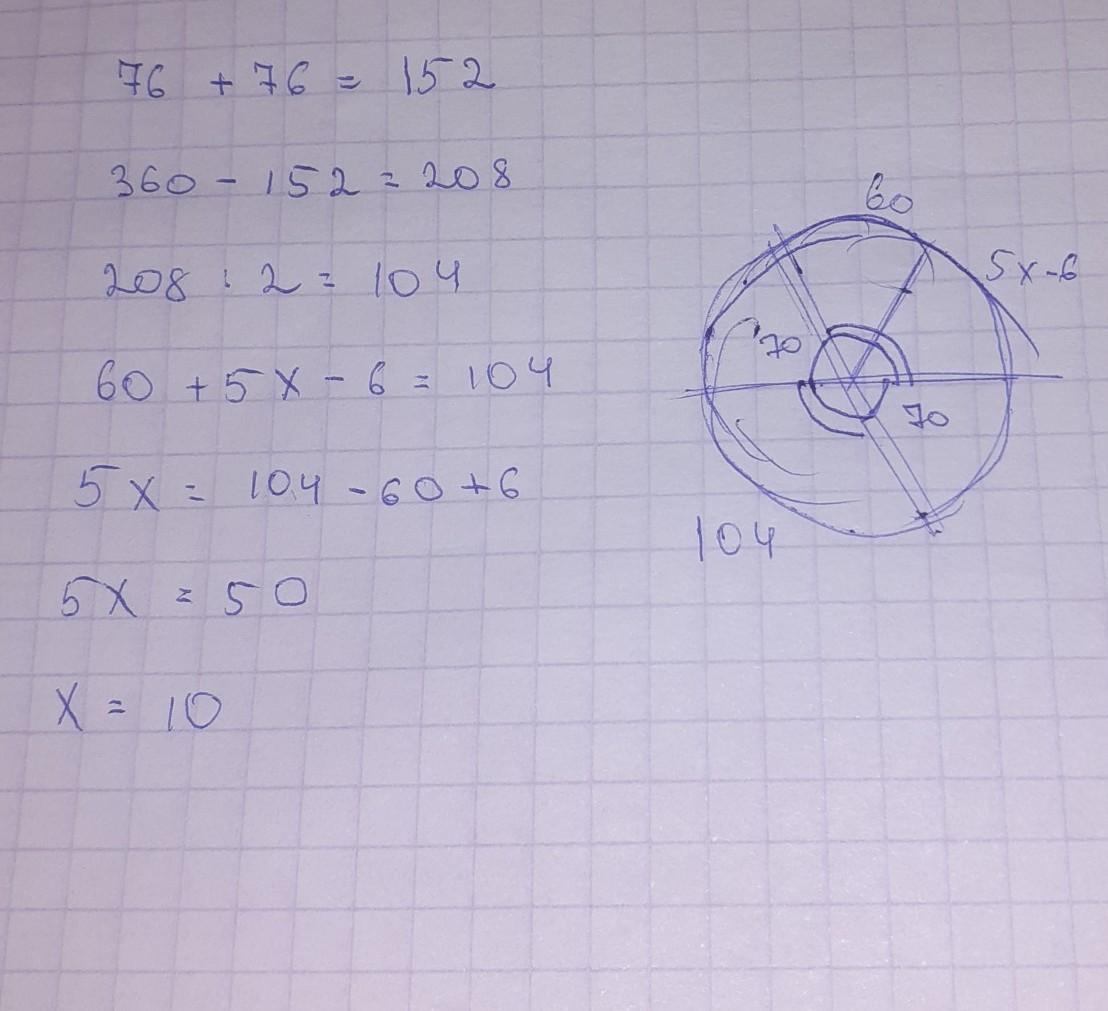 76 + 76 = 152
360 - 152 = 208
208 : 2 = 104
60 + 5x - 6 = 104
5x = 104 - 60 + 6
5x = 50
x = 10
60
5x-6
70
70
104